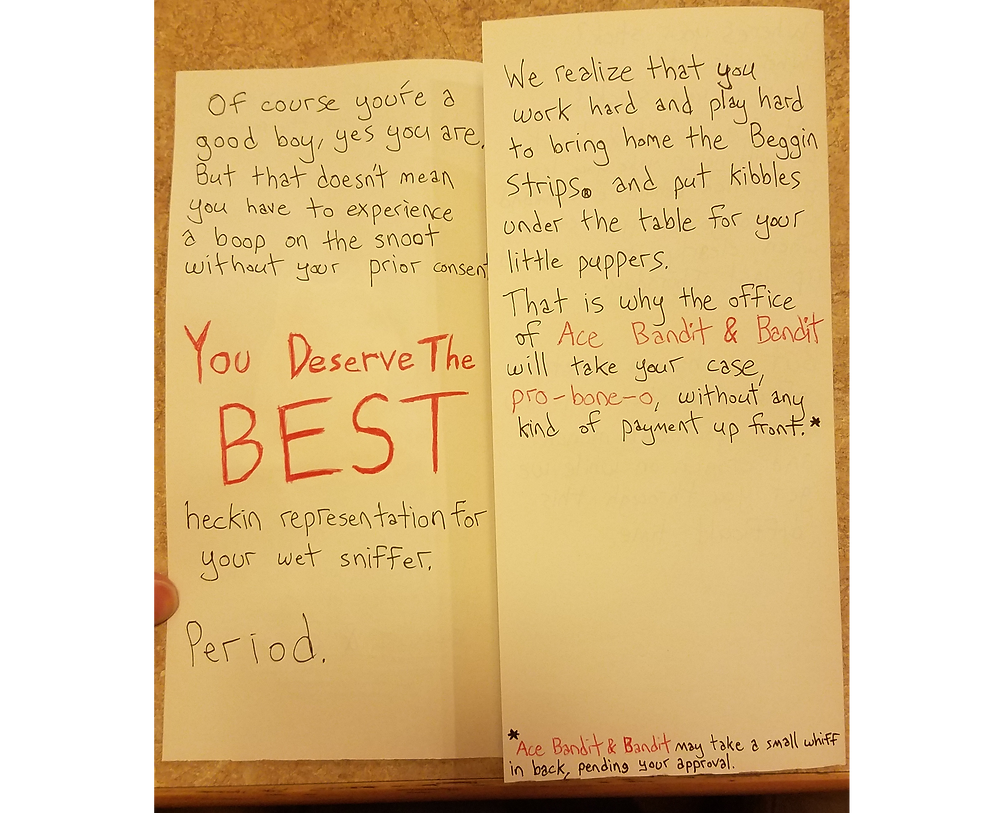 Of course you're a
good boy, yes you are.
But that doesn't mean
you have to experience
a boop on the snoot
without your prior consent
You Deserve The
BEST
heckin representation for
your wet sniffer.
Period.
We realize that you
work hard and play hard
to bring home the Beggin
Strips® and put kibbles
under the table for your
little puppers.
That is why the office
of Ace Bandit & Bandit
will take your case,
pro-bone-o, without any
kind of payment up front.*
*Ace Bandit & Bandit may take a small whiff
in back, pending your approval.